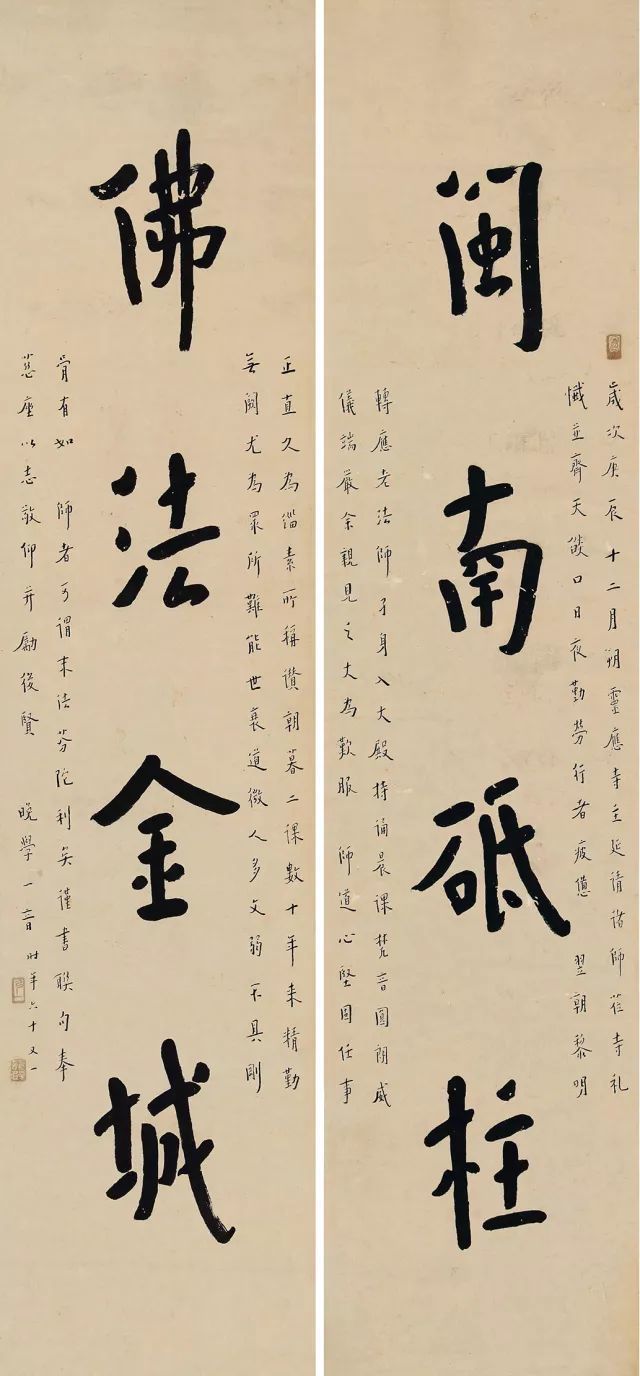 歲次庚辰十二月朔靈應寺主延請諸師莅寺礼
懺並齋天燄口日夜勤勞行者疲憊 翌朝黎明
閩南砥柱
轉應老法師孑身入大殿持誦晨課梵音圓朗威
儀端嚴余親見之大為歎服 師道心堅固任事
正直久為緇素所稱讚朝暮二課數十年來精勤
無闕尤為眾所難能世衰道微人多文弱不具剛
佛法金城
骨有如 師者可謂末法芬陀利矣謹書聯句奉
慈座以志敬仰并勵後賢 晚學一音時年六十又一